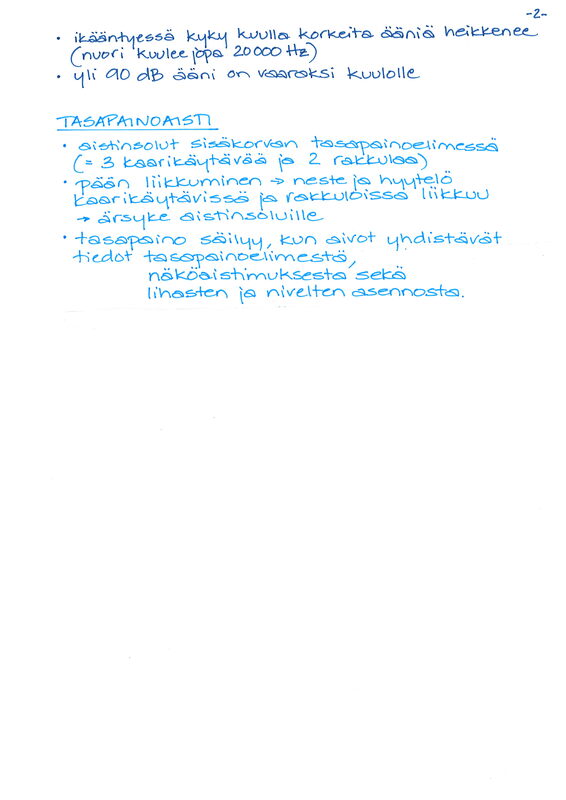 -2-
• ikääntyessä kyky kuulla korkeita ääniä heikkenee
(nuori kuulee jopa 20 000 Hz)
• yli 90 dB ääni on vaaraksi kuulolle
TASAPAINOAISTI
• aistinsolut sisäkorvan tasapainoelimessä
(= 3 kaarikäytävää ja 2 rakkulaa)
• pään liikkuminen → neste ja hyytelö
kaarikäytävissä ja rakkuloissa liikkuu
→ ärsyke aistinsoluille
• tasapaino säilyy, kun aivot yhdistävät
tiedot tasapainoelimestä,
näköaistimuksesta sekä
lihasten ja nivelten asennosta.